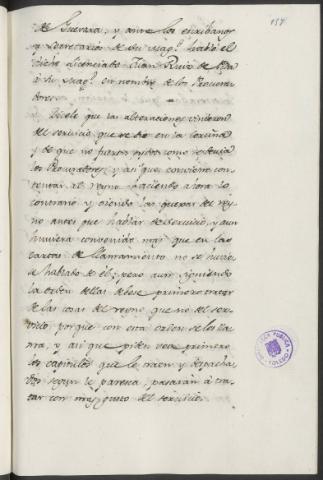 157
de Guevara, y ante los escribanos
y Secretarios de Su Magd. habló el
dicho Licenciado Juan Ruiz de
a Su Magd. en nombre de los Procura-
dores.
Dícele que las alteraciones vinieron
del servicio que se dio en la Coruña
y de que no fueron oydos como
los Procuradores, y así que conviene con-
tentar al reyno haciendo ahora lo
contrario y oiendo las quejas del rey-
no antes que hablar de servicio, y aun
huviera convenido mas que en las
cartas de llamamiento no se huvie-
se hablado de él; pero aun siguiendo
la orden dellas debese primero tratar
de las cosas del reyno que no del ser-
vicio, porque con esta orden se les lla-
ma, y así que piden vea primero
los capitulos que le traen y despacha-
dos segun le paresca, pasarán á tra-
tar con mas gusto del servicio.
BIBLIOTECA PUBLICA
TOLEDO